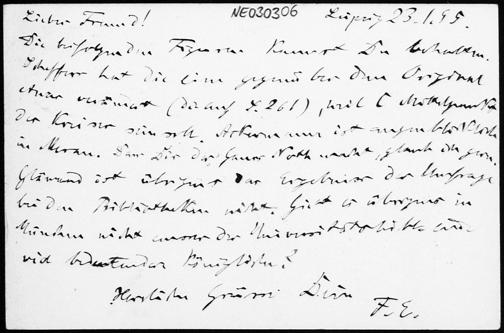 NE030306
Lieber Freund!
Leipzig 23.1.95.
Die beifolgenden Figuren kannst Du behalten.
Scheffler hat die eine gegenüber dem Original
etwas verändert (die auf S. 261), weil C
der Kreise sein soll. Ackermann ist augenblicklich
in Meran. Dass Dir das Ganze Noth macht, glaub ich gern.
Glänzend ist übrigens das Ergebniss der Umfrage
bei den Bibliotheken nicht. Giebt es übrigens in
München nicht ausser der Universitätsbibl. eine
viel bedeutendere Königliche?
Herzliche Grüsse Dein
F.E.